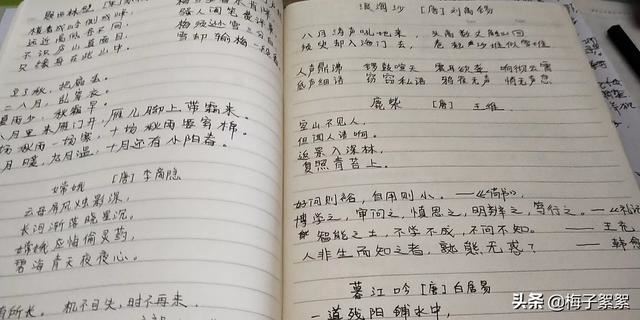 题西林壁
横看成岭侧成峰
远近高低各不同
不识庐山真面目
只缘身在此山中
骚人阁笔费评章
梅须逊雪三分白
雪却输梅一段香
立了秋，把扇丢。
二八月，乱穿衣。
雁儿脚上带霜来。
场秋雨一场寒，十场秋雨要穿棉。
十月还有小阳春。
嫦娥 [唐] 李商隐
云母屏风烛影深，
长河渐落晓星沉。
嫦娥应悔偷灵药，
碧海青天夜夜心。
有所长。 机不可失，时不再来。
浪淘沙 [唐] 刘禹锡
八月涛声吼地来，头高数丈触山回
须臾却入海门去，卷起沙堆似雪堆
人声鼎沸 锣鼓喧天 震耳欲聋 响彻云霄
低声细语 窃窃私语 鸦雀无声 悄无声息
鹿柴 [唐] 王维
空山不见人，
但闻人语响。
返景入深林，
复照青苔上。
好问则裕，自用则小。——《尚书》
博学之，审问之，慎思之，明辨之，笃行之。——《礼记
智能之士，不学不成，不问不知。——王充
人非生而知之者，孰能无惑？——韩愈
暮江吟 [唐] 白居易
一道残阳铺水中，
头条 @梅子絮絮